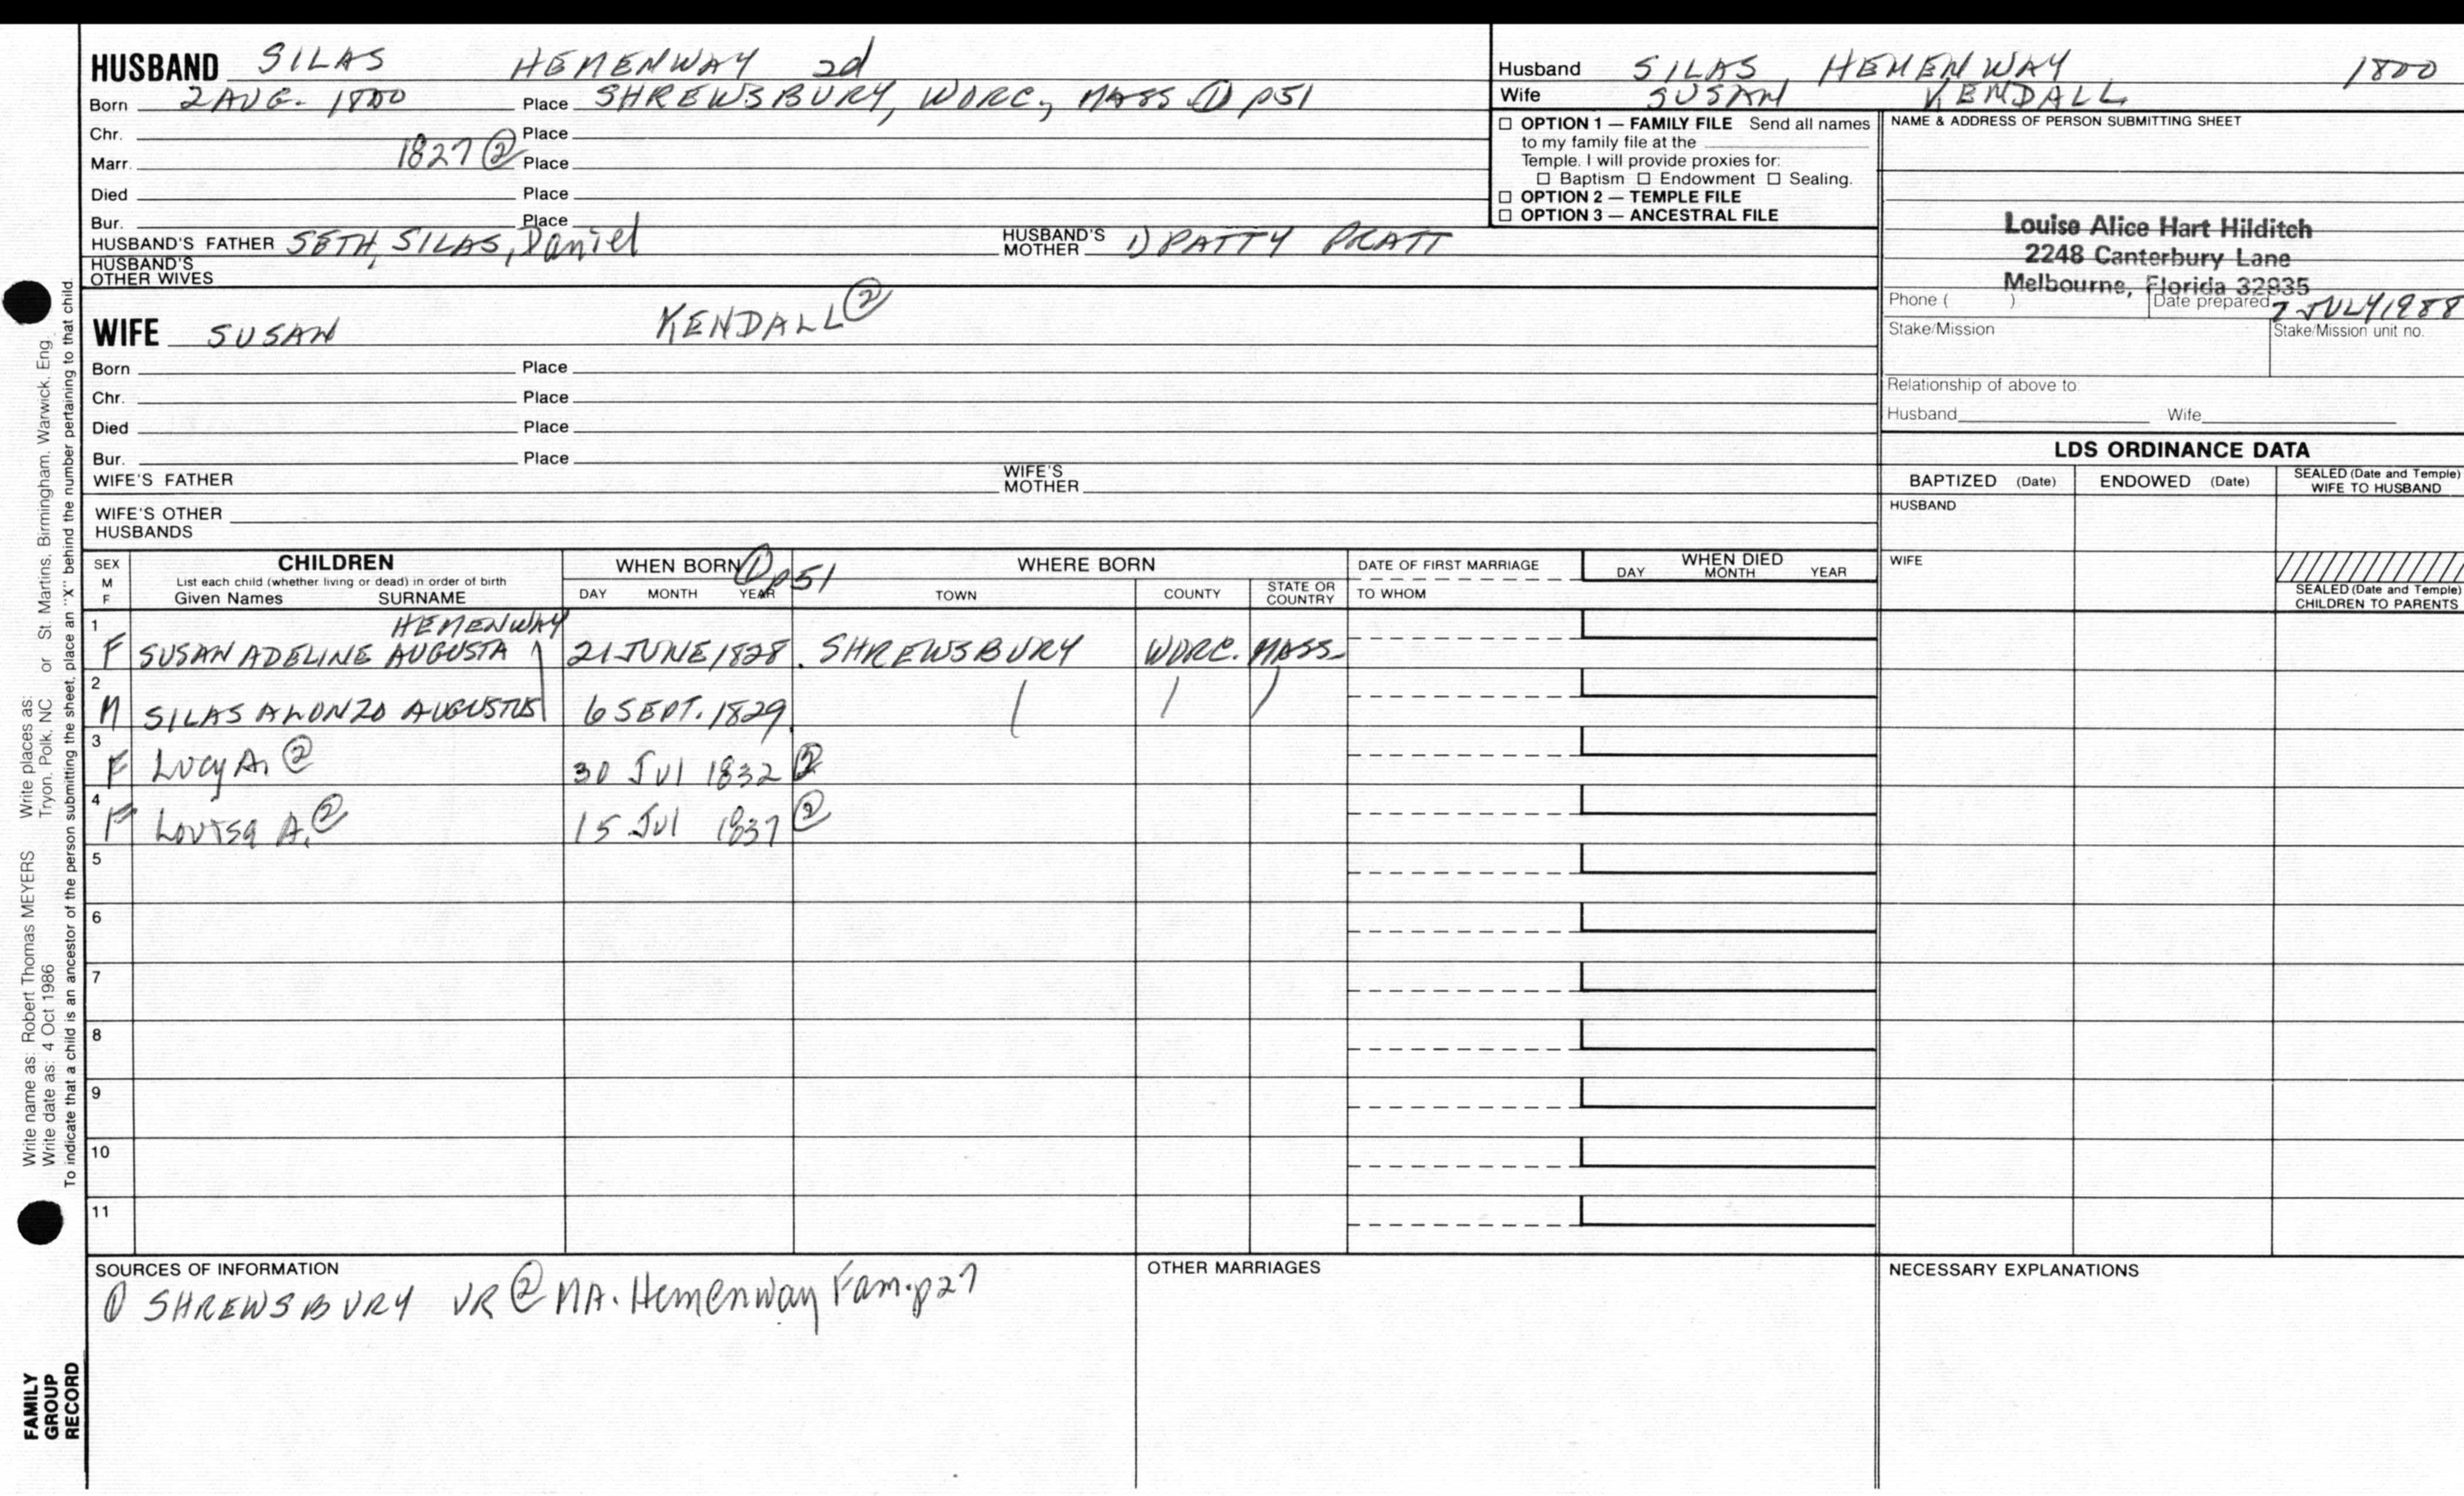 HUSBAND SILAS HEMENWAY 2d
Born 2 AUG. 1800 Place SHREWSBURY, WORC, MASS ① p51
Chr. Place
Marr. 1827 ② Place
Died Place
Bur. Place
HUSBAND'S FATHER SETH, SILAS, Daniel HUSBAND'S MOTHER 1) PATTY PRATT
HUSBAND'S OTHER WIVES
WIFE SUSAN KENDALL ②
Born Place
Chr. Place
Died Place
Bur. Place
WIFE'S FATHER WIFE'S MOTHER
WIFE'S OTHER HUSBANDS
Husband SILAS HEMENWAY 1800
Wife SUSAN KENDALL
☐ OPTION 1 — FAMILY FILE Send all names
to my family file at the
Temple. I will provide proxies for:
☐ Baptism ☐ Endowment ☐ Sealing.
☐ OPTION 2 — TEMPLE FILE
☐ OPTION 3 — ANCESTRAL FILE
NAME & ADDRESS OF PERSON SUBMITTING SHEET
Louise Alice Hart Hilditch
2248 Canterbury Lane
Melbourne, Florida 32935
Phone ( ) Date prepared 7 JULY 1988
Stake/Mission Stake/Mission unit no.
Relationship of above to:
Husband Wife
LDS ORDINANCE DATA
BAPTIZED (Date) ENDOWED (Date) SEALED (Date and Temple) WIFE TO HUSBAND
HUSBAND
WIFE
SEALED (Date and Temple) CHILDREN TO PARENTS
SEX M F
CHILDREN
List each child (whether living or dead) in order of birth
Given Names SURNAME
WHEN BORN ① p51
DAY MONTH YEAR
WHERE BORN
TOWN COUNTY STATE OR COUNTRY
DATE OF FIRST MARRIAGE
TO WHOM
WHEN DIED
DAY MONTH YEAR
HEMENWAY
1 F SUSAN ADELINE AUGUSTA 21 JUNE 1828 SHREWSBURY WORC. MASS.
2 M SILAS ALONZO AUGUSTUS 6 SEPT. 1829
3 F Lucy A. ② 30 Jul 1832 ②
4 F Louisa A. ② 15 Jul 1837 ②
5
6
7
8
9
10
11
SOURCES OF INFORMATION
① SHREWSBURY VR ② MA. Hemenway Fam. p27
OTHER MARRIAGES
NECESSARY EXPLANATIONS
Write name as: Robert Thomas MEYERS Write places as:
Write date as: 4 Oct 1986 Tryon, Polk, NC or St. Martins, Birmingham, Warwick, Eng.
To indicate that a child is an ancestor of the person submitting the sheet, place an "X" behind the number pertaining to that child.
FAMILY
GROUP
RECORD